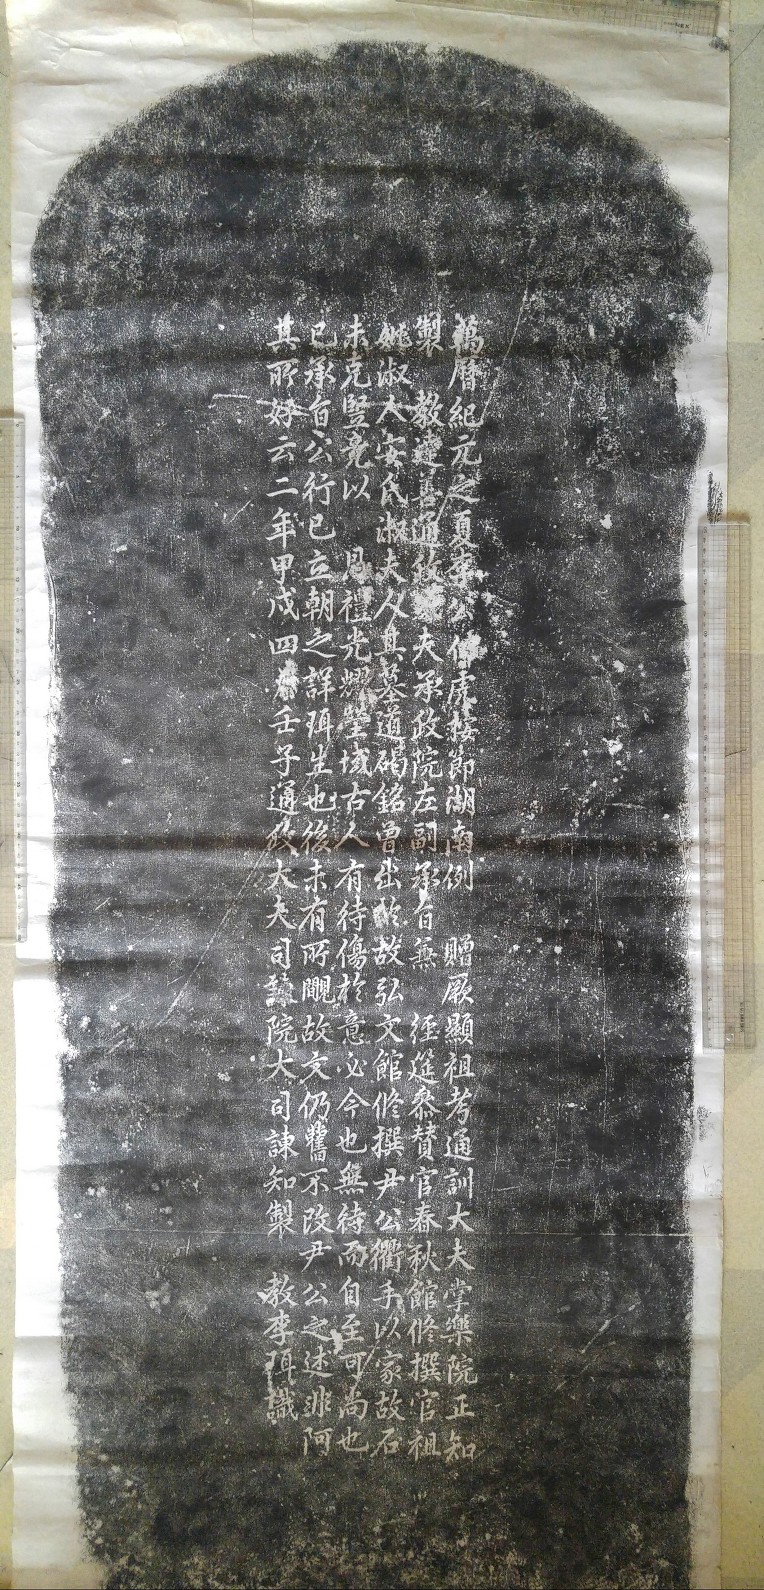 萬曆紀元之夏李公仲虎按節湖南例 贈厥顯祖考通訓大夫掌樂院正知
製 教達善通政夫承政院左副承旨無 經筵叅賛官春秋館修撰官祖
妣淑人安氏淑夫人其墓道碣銘曾出於故弘文館修撰尹公衢手以家故石
未克竪竟以 恩禮光耀塋域古人有待傷於意必今也無待而自至可尚也
已承旨公行已立朝之詳珥生也後未有所覸故文仍舊不改尹公之述非阿
其所好云二年甲戌四月壬子通政大夫司諫院大司諫知製 教李珥識